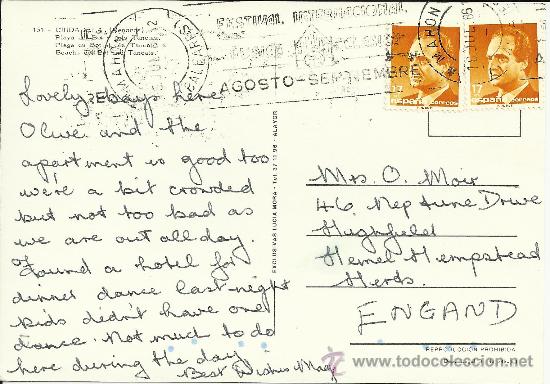 151 - CIUDADELA (Menorca)
Playa
FESTIVAL INTERNACIONAL
AGOSTO-SEPTIEMBRE
MAHON
BALEARES
MAHON
17 17
españa correos españa correos
Lovely days here
Olive and the
apartment is good too
we're a bit crowded
but not too bad as
we are out all day.
Found a hotel for
dinner dance last-night
kids didn't have one
dance. Not much to do
here during the day
Best Wishes May
EXCLUSIVAS LUCIA MORA - Tel 37 11 96 - ALAYOR
Mrs. O. Moir
46 Neptune Drive
Highfield
Hemel Hempstead
Herts.
ENGAND
REPRODUCCION PROHIBIDA
www.todocoleccion.net